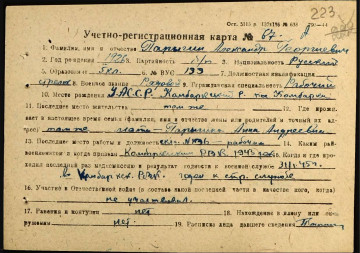 223
Учетно-регистрационная карта № 67
1. Фамилия, имя и отчество Парыгин Александр Георгиевич
2. Год рождения 1926 Партийность б/п 3. Национальность Русский
4. Образование 5 кл. 6. № ВУС 133 7. Должностная квалификация
стрелок 8. Военное звание Рядовой Гражданская специальность Рабочий
10. Место рождения УАССР. Камбарский р-н
11. Последнее место жительства там же
12. Где проживает в настоящее время семья (фамилия, имя и отчество жены или родителей и точный их адрес) там же мать Парыгина Анна Андреевна
13. Последнее место работы и должность рабочий 14. Каким райвоенкоматом и когда призван Камбарским РВК 1943
15. Когда и где проходил последний раз медкомиссию и результат годности к военной службе
годен к стр. службе
16. Участие в Отечественной войне (в составе какой последней части и качестве кого, когда)
не участвовал
17. Ранения и контузии нет 18. Нахождение в плену или окружении
нет 19. Роспись лица давшего сведения